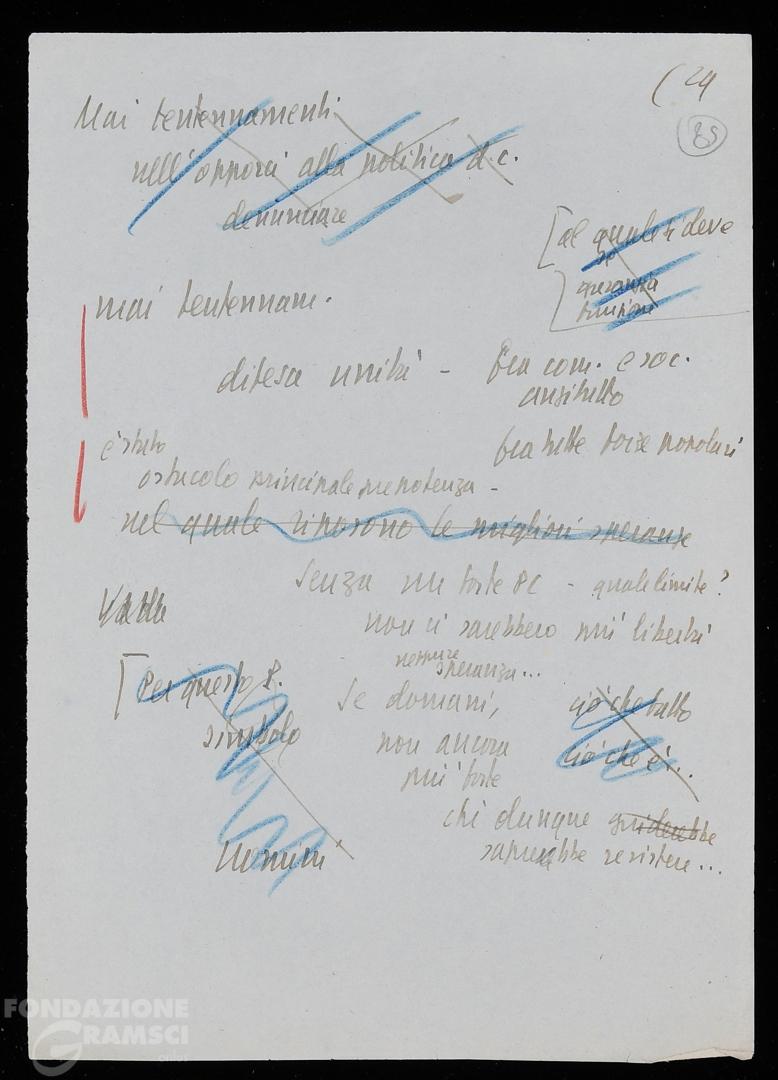 (24
85
Mai tentennamenti
nell'opporci alla politica d.c.
denunciare
[al quale si deve
speranza
mai tentennam.
difesa unità - fra com. e soc.
anzitutto
fra tutte forze popolari
è stato
ostacolo principale prepotenza -
nel quale riposono le migliori speranze
Senza un forte PC - quale limite?
non ci sarebbero più libertà
neppure
speranza...
[Per questo P.
simbolo
Uomini
Se domani,
non ancora
più forte
ciò che fatto
ciò che è...
chi dunque guiderebbe
saprebbe resistere...
FONDAZIONE
GRAMSCI
onlus